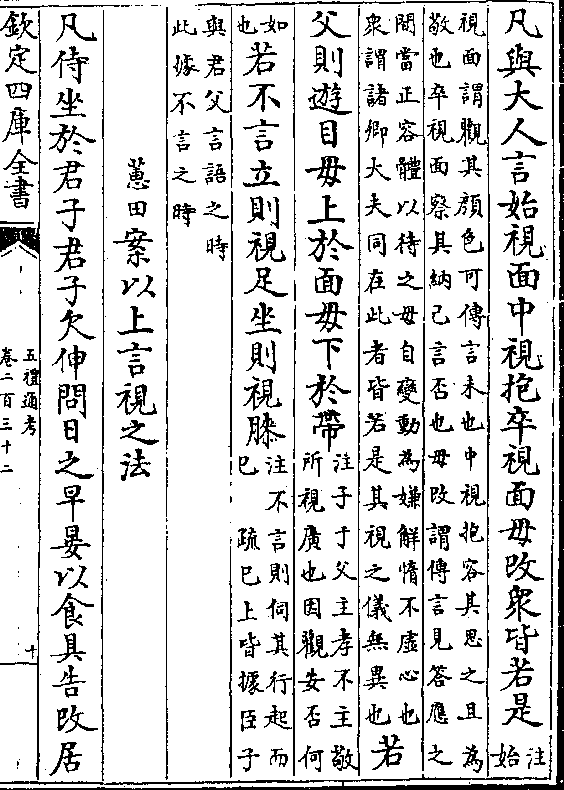 凡與大人言始視面中視抱卒視面毋改衆皆若是注始
視面謂觀其顔色可傳言未也中視抱容其思之且為
敬也卒視面察其納己言否也毋改謂傳言見答應之
間當正容體以待之毋自變動為嫌解惰不虛心也
衆謂諸卿大夫同在此者皆若是其視之儀無異也
若
父則遊目毋上於面毋下於帶
注子于父主孝不主敬
所視廣也因觀安否何
如
也
若不言立則視足坐則視膝
注不言則伺其行起而
已 疏已上皆據臣子
與君父言語之時
此據不言之時
蕙田案以上言視之法
凡侍坐於君子君子欠伸問日之早晏以食具告改居
欽定四庫全書
五禮通考
卷二百三十二
十